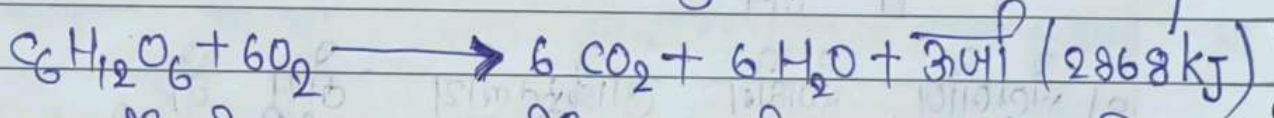 C6H12O6 + 6O2 → 6 CO2 + 6 H2O + ऊर्जा (2868 kJ)